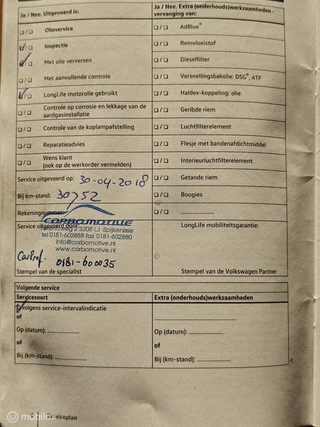 Ja / Nee. Uitgevoerd is:
☐/☐ Olieservice
☑/☐ Inspectie
☑/☐ Met olie verversen
☐/☐ Met aanvullende controle
☑/☐ LongLife motorolie gebruikt
☐/☐ Controle op corrosie en lekkage van de
aardgasinstallatie
☐/☐ Controle van de koplampafstelling
☐/☐ Reparatieadvies
☐/☐ Wens klant
(ook op de werkorder vermelden)
Service uitgevoerd op: 30-04-2018
Bij km-stand: 30752
Rekeningnummer:
Service uitgevoerd door:
CARBOMOTIVE
3208 LJ Spijkenisse
tel 0181-602888 fax 0181-602880
info@carbomotive.nl
www.carbomotive.nl
0181-600035
Stempel van de specialist
Ja / Nee, Extra (onderhouds)werkzaamheden -
vervanging van:
☐/☐ AdBlue®
☐/☐ Remvloeistof
☐/☐ Dieselfilter
☐/☐ Versnellingsbakolie: DSG®, ATF
☐/☐ Haldex-koppeling: olie
☐/☐ Geribde riem
☐/☐ Luchtfilterelement
☐/☐ Flesje met bandenafdichtmiddel
☐/☐ Interieurluchtfilterelement
☐/☐ Getande riem
☐/☐ Bougies
☐/☐
LongLife mobiliteitsgarantie:
Stempel van de Volkswagen Partner
Volgende service
Servicesoort
Volgens service-intervalindicatie
of
Op (datum):
of
Bij (km-stand):
Extra (onderhouds)werkzaamheden
Op (datum):
of
Bij (km-stand):
4
Serviceplan